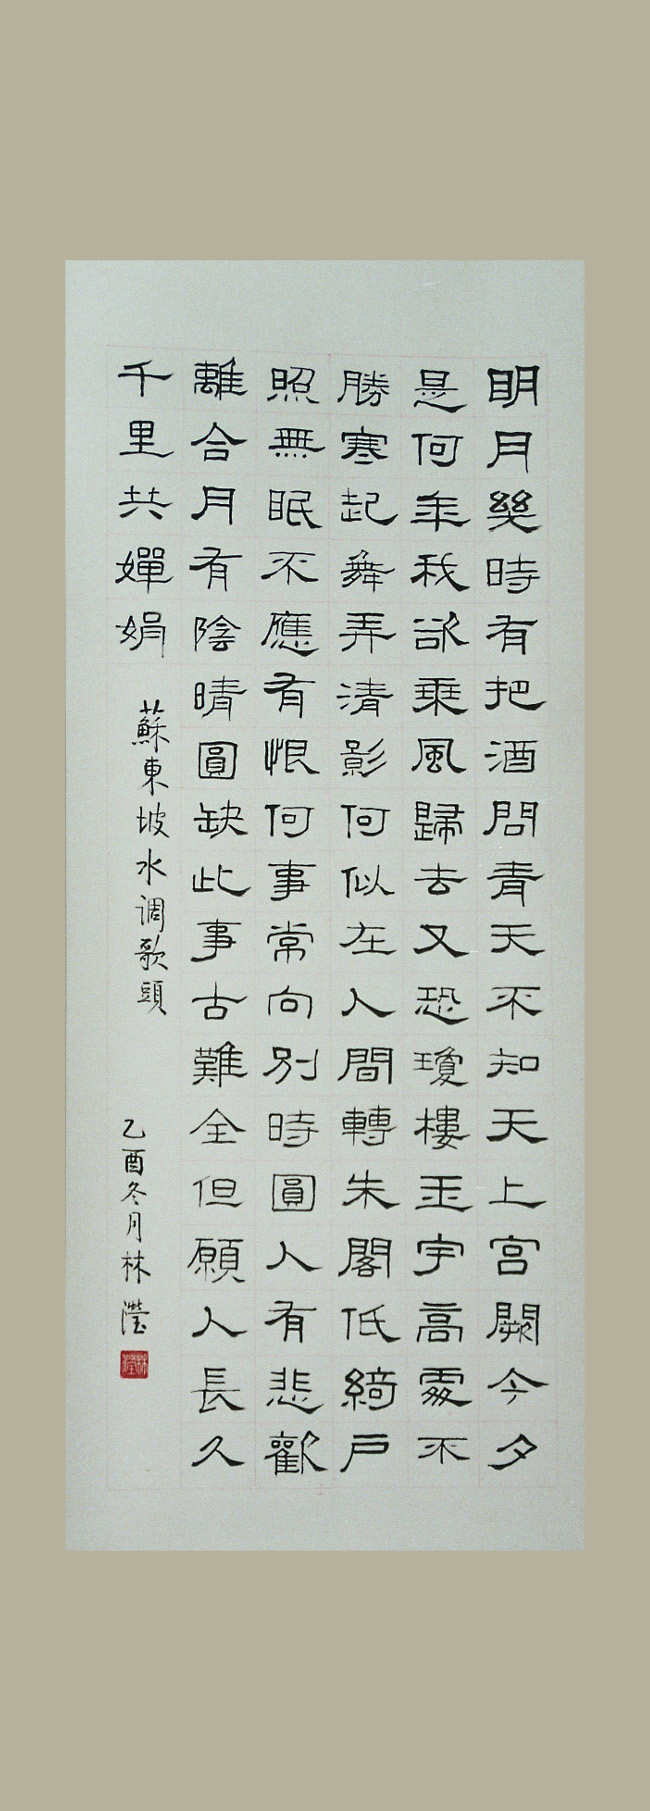 明月幾時有把酒問青天不知天上宫闕今夕
是何年我欲乘風歸去又恐瓊樓玉宇高處不
勝寒起舞弄清影何似在人間轉朱閣低綺戶
照無眠不應有恨何事常向别時圓人有悲歡
離合月有陰晴圓缺此事古難全但願人長久
千里共嬋娟
蘇東坡水调歌頭
乙酉冬月林瀅